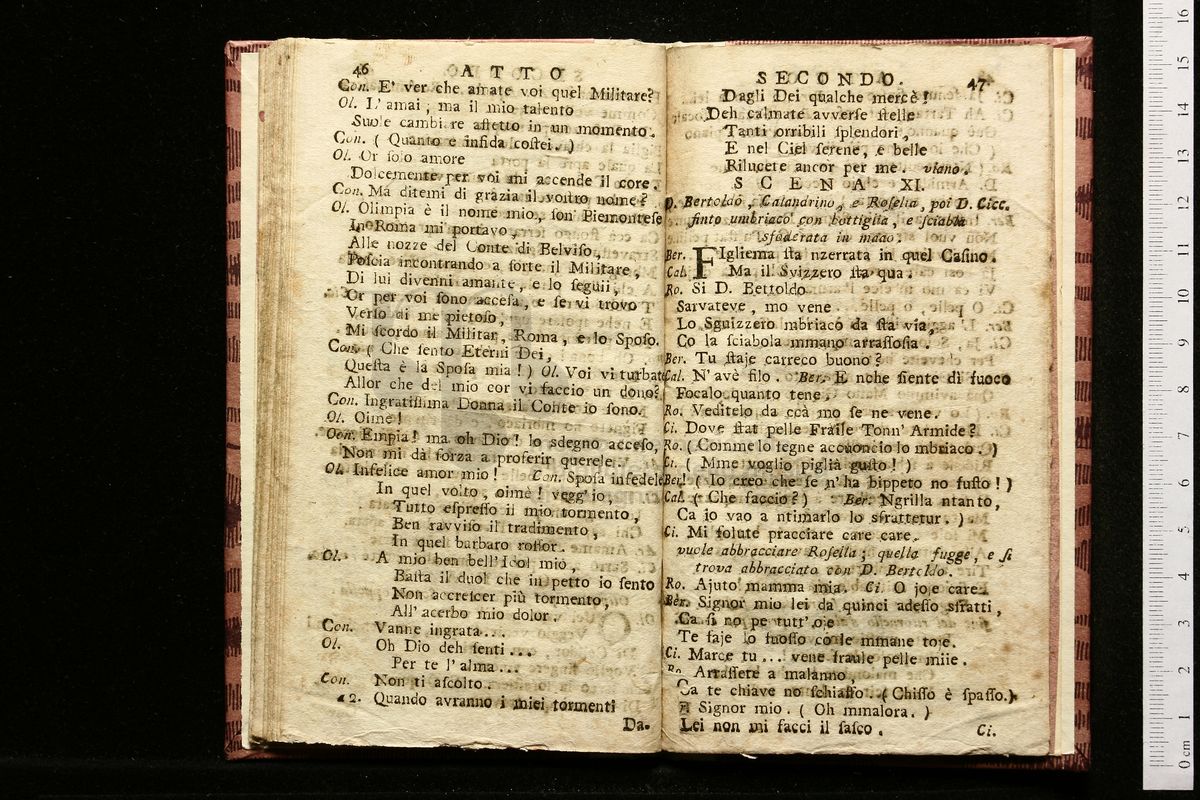 46 ATTO
Con. E' ver che amate voi quel Militare?
Ol. L' amai, ma il mio talento
Suole cambi re affetto in un momento.
Con. ( Quanto e infida costei. )
Ol. Or solo amore
Dolcemente per voi mi accende il core.
Con. Ma ditemi di grazia il vostro nome?
Ol. Olimpia è il nome mio, son' Piemontese
In Roma mi portavo,
Alle nozze del Conte di Belviso,
Poscia incontrando a sorte il Militare,
Di lui divenni amante, e lo seguii,
Or per voi sono accesa, e se vi trovo
Verso di me pietoso,
Mi scordo il Militar, Roma, e lo Sposo.
Con. ( Che sento Eterni Dei,
Questa è la Sposa mia! ) Ol. Voi vi turbate
Allor che del mio cor vi faccio un dono?
Con. Ingratissima Donna il Conte io sono.
Ol. Oimè!
Con. Empia! ma oh Dio! lo sdegno acceso,
Non mi dà forza a proferir querele.
Ol. Infelice amor mio! Con. Sposa infedele
In quel volto, oimè! vegg' io,
Tutto espresso il mio tormento,
Ben ravviso il tradimento,
In quel barbaro rossor.
Ol. A mio ben bell' Idol mio,
Basta il duol che in petto io sento
Non accrescer più tormento,
All' acerbo mio dolor.
Con. Vanne ingrata...
Ol. Oh Dio deh senti...
Per te l' alma...
Con. Non ti ascolto.
a 2. Quando avranno i miei tormenti
Da.
SECONDO. 47
Dagli Dei qualche mercè!
Deh calmate avverse stelle
Tanti orribili splendori,
E nel Ciel serene, e belle
Rilucete ancor per me. viano.
SCENA XI.
D. Bertoldo, Calandrino, e Roselta, poi D. Cicc.
finto umbriaco con bottiglia, e sciabla
sfoderata in mano
Ber. FIgliema sta nzerrata in quel Casino.
Cal. Ma il Svizzero sta qua.
Ro. Si D. Bertoldo
Sarvateve, mo vene
Lo Sguizzero mbriaco da sta via,
Co la sciabola mmano arrassosia.
Ber. Tu staje carreco buono?
Cal. N' avè filo. Ber. E nche siente dì fuoco
Focalo quanto tene.
Ro. Veditelo da ccà mo se ne vene.
Ci. Dove stat pelle Fraile Tonn' Armide?
Ro. ( Comme lo fegne acconcio lo mbriaco. )
Ci. ( Mme voglio piglià gusto! )
Ber. ( Io creo che se n' ha bippeto no fusto! )
Cal. ( Che faccio? ) Ber. Ngrilla ntanto,
Ca io vao a ntimarlo lo sfrattetur. )
Ci. Mi solute pracciare care care.
vuole abbracciare Rosella; quella fugge, e si
trova abbracciato con D. Bertoldo.
Ro. Ajuto mamma mia. Ci. O joje care
Ber. Signor mio lei da quinci adesso sfratti,
Ca si no pe tutt' oje
Te faje lo fuosso co le mmane toje.
Ci. Marce tu... vene fraule pelle miie.
Ro. Arrassete a malanno,
Ca te chiave no schiaffo. ( Chisso è spasso. )
Signor mio. ( Oh mmalora. )
Lei non mi facci il sasco.
Ci.